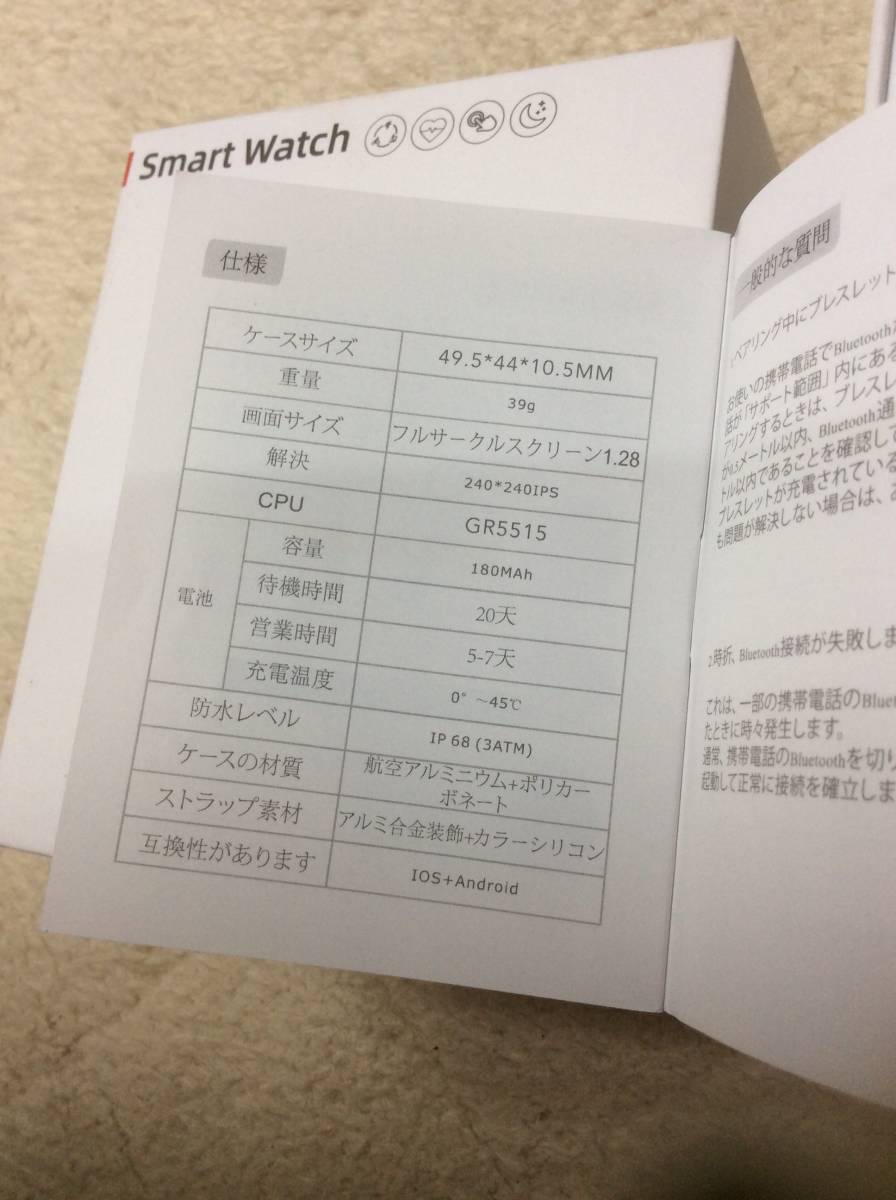 Smart Watch
仕様
ケースサイズ 49.5*44*10.5MM
重量 39g
画面サイズ フルサークルスクリーン1.28
解決 240*240IPS
CPU GR5515
電池
容量 180MAh
待機時間 20天
営業時間 5-7天
充電温度 0° ~45℃
防水レベル IP 68 (3ATM)
ケースの材質 航空アルミニウム+ポリカー
ボネート
ストラップ素材 アルミ合金装飾+カラーシリコン
互換性があります IOS+Android
一般的な質問
ペアリング中にブレスレット
お使いの携帯電話でBluetooth
話が「サポート範囲」内にある
アリングするときは、ブレスレ
が0.5メートル以内、Bluetooth通
トル以内であることを確認して
ブレスレットが充電されている
も問題が解決しない場合は、
2.時折、Bluetooth接続が失敗しま
これは、一部の携帯電話のBluet
たときに時々発生します。
通常、携帯電話のBluetoothを切り
起動して正常に接続を確立しま